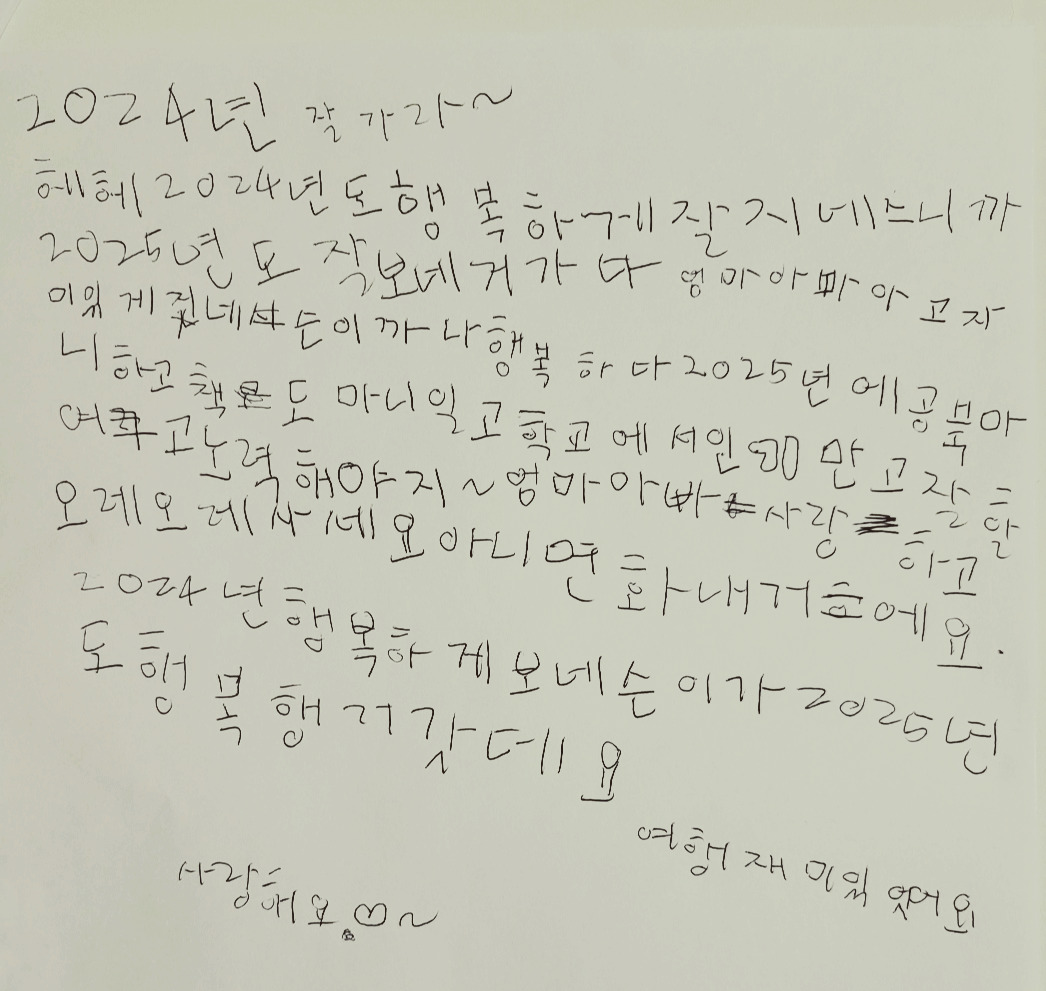 2024년 잘가라~
헤헤 2024년도 행복하게 잘 지네느니까
2025년도 작보네거가다 엄마아빠아고자
미있게 짓네슨이까 나행복하다 2025년에공부마
니하고 책도 마니일고 학교에서인 만고자를
여고노력해야지~엄마아빠사랑하고
오레오레사세요아니면화내거에요.
2024년행복하게보네슨이가2025년
도행복행거갓데요
여행재미있엇어요
사랑해요.♡~